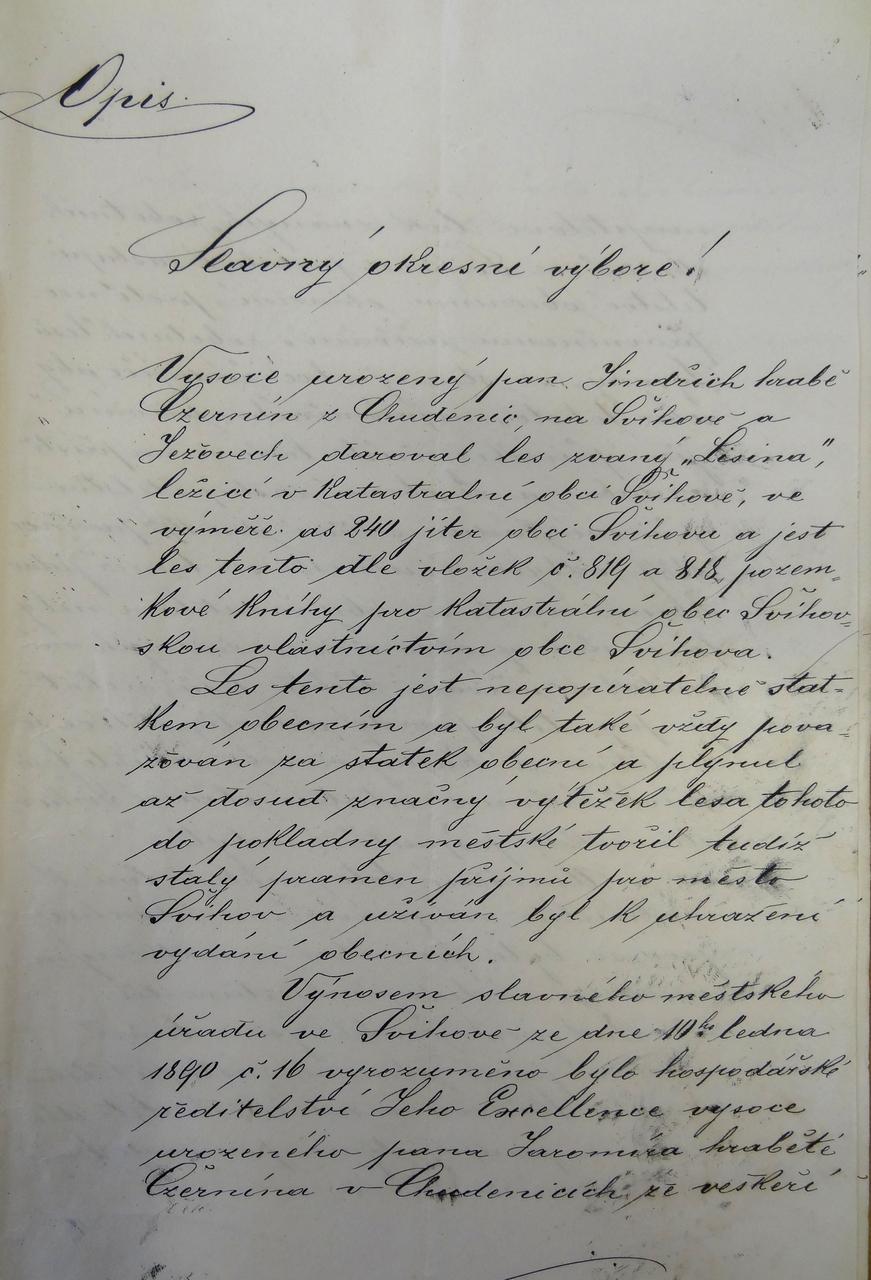 Opis.
Slavný okresní výbore!
Vysoce urozený pan Jindřich hrabě
Czernín z Chudenic, na Švihově a
Ježovech daroval les zvaný „Lisina",
ležící v katastralní obci Švihově, ve
výměře as 240 jiter obci Švihovu a jest
les tento dle vložek č. 819 a 818 pozem-
kové knihy pro katastrální obec Švihov-
skou vlastnictvím obce Švihova.
Les tento jest nepopíratelně stat-
kem obecním a byl také vždy pova-
žován za statek obecní a plynul
až dosud značný výtěžek lesa tohoto
do pokladny městské tvořil tudíž
stalý pramen příjmů pro město
Švihov a užíván byl k uhražení
vydání obecních.
Výnosem slavného městského
úřadu ve Švihově ze dne 10ho ledna
1890 č. 16 vyrozuměno bylo hospodářské
ředitelství Jeho Excellence vysoce
urozeného pana Jaromíra hraběte
Czernína v Chudenicích že veškeří